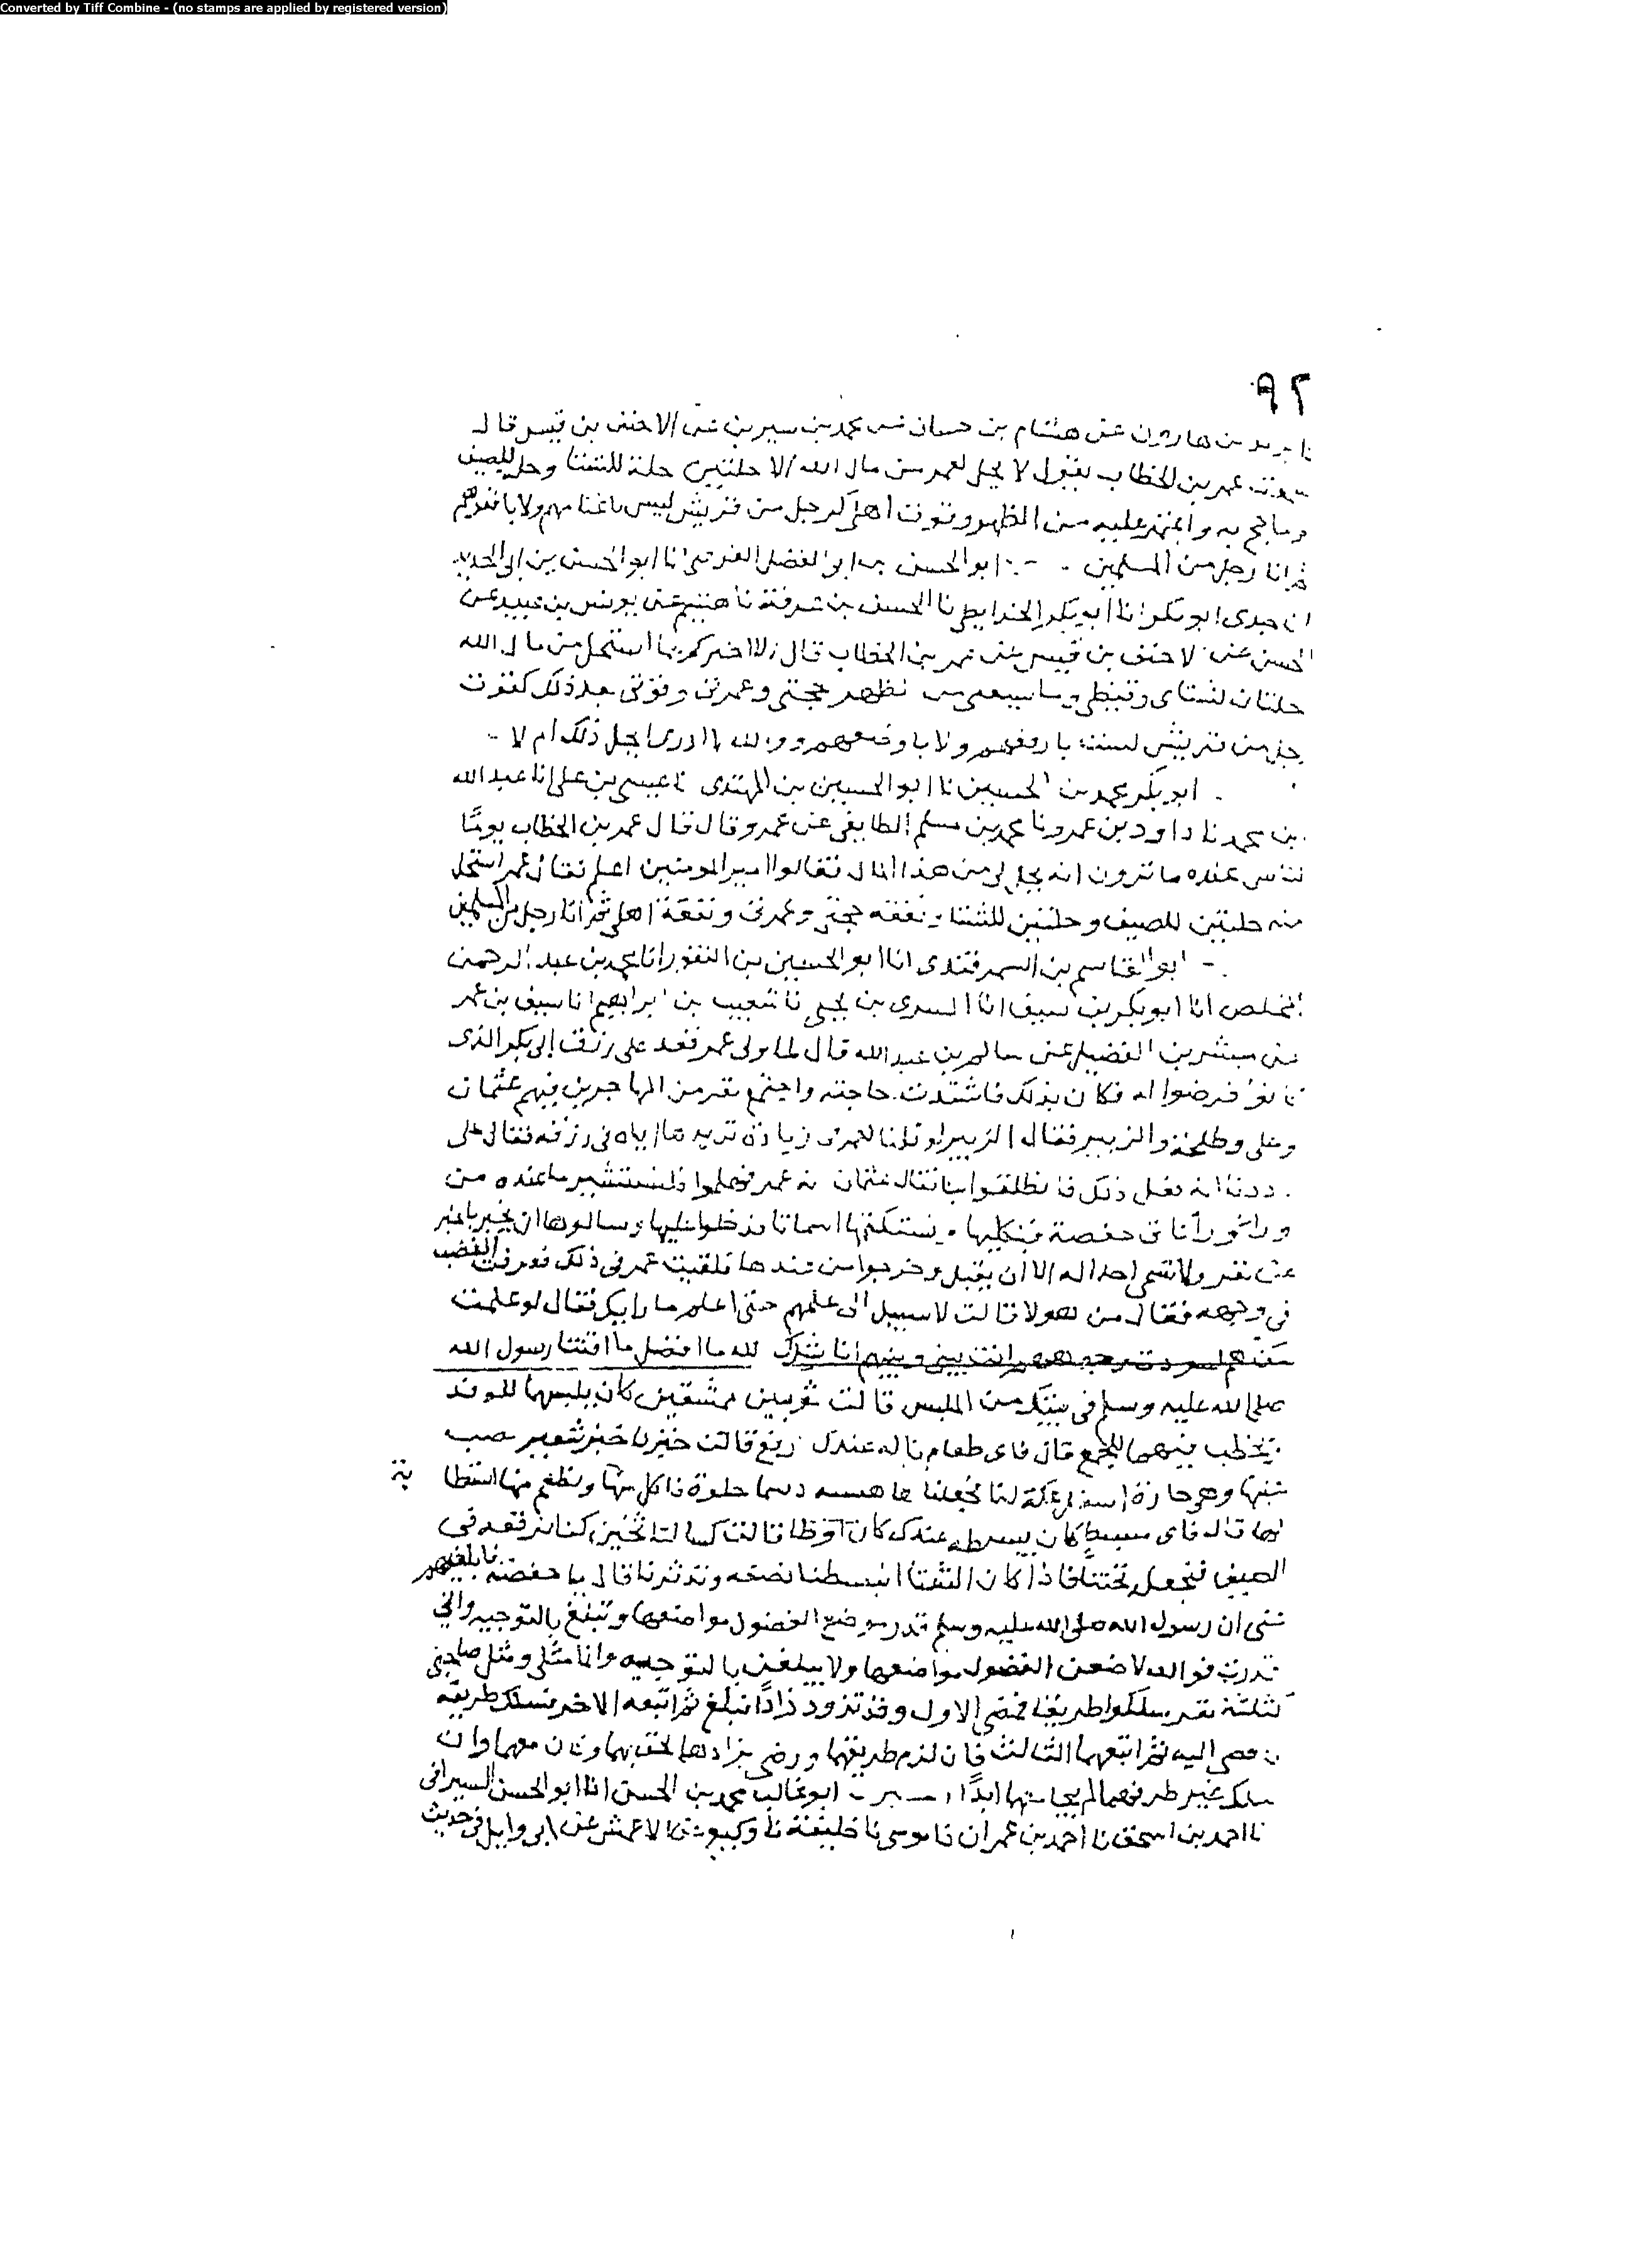 Converted by Tiff Combine - (no stamps are applied by registered version)
٩٢
نا يزيد بن هارون عن هشام بن حسان عن محمد بن سيرين عن الاحنف بن قيس قال
سمعت عمر بن الخطاب يقول لا يحل لعمر من مال الله الا حلتين حلة للشتا وحلة للصيف
وما حج به واعتمر عليه من الظهر وقوت اهلى كرجل من قريش ليس باغناهم ولا بافقرهم
ثم انا رجل من المسلمين ابو الحسن بن ابو الفضل الفرضى انا ابو الحسن بن ابى الحديد
انا جدى ابو بكر انا ابو بكر الخرايطى نا الحسن بن عرفة نا هشيم عن يونس بن عبيد عن
الحسن عن الاحنف بن قيس عن عمر بن الخطاب قال الا اخبركم بما استحل من مال الله
حلتان لشتاى وقيظى وما يسعنى من ظهر لحجتى وعمرتى وقوتى بعد ذلك كقوت
رجل من قريش لست بارفعهم ولا باوضعهم ووالله ما ادرى ايحل ذلك ام لا
ابو بكر محمد بن الحسين نا ابو الحسين بن المهتدى نا عيسى بن على انا عبد الله
بن محمد نا داود بن عمرو نا محمد بن مسلم الطايفى عن عمرو قال قال عمر بن الخطاب يومًا
لناس عنده ما ترون انه يحل لى من هذا المال فقالوا امير المومنين اعلم فقال عمر استحل
منه حلتين للصيف وحلتين للشتا ونفقة حجتى وعمرتى ونفقة اهلى ثم انا رجل من المسلمين
ابو القاسم بن السمرقندى انا ابو الحسين بن النقور انا محمد بن عبد الرحمن
المخلص انا ابو بكر بن سيف انا السرى بن يحيى نا شعيب بن ابراهيم انا سيف بن عمر
عن مبشر بن الفضيل عن سالم بن عبد الله قال لما ولى عمر قعد على رزق ابى بكر الذى
كانوا فرضوا له فكان بذلك فاشتدت حاجته واجتمع نفر من المهاجرين فيهم عثمان
وعلى وطلحة والزبير فقال الزبير لو قلنا لعمر فى زيادة نزيدها اياه فى رزقه فقال على
وددنا انه فعل ذلك فانطلقوا بنا فقال عثمان انه عمر فهلموا فلنستشير ما عنده من
ورا ورا ناتى حفصة فنكلمها ونستكتمها اسمانا فدخلوا عليها وسالوها ان يخبر بالخبر
عن نفر ولا تسمى احدا له الا ان يقبل وخرجوا من عندها فلقيت عمر فى ذلك فعرفت الغضب
فى وجهه فقال من هولا قالت لا سبيل الى علمهم حتى اعلم ما رايك فقال لو علمت
من هم لسودت وجوههم انت بينى وبينهم اناشدك لله ما افضل ما اقتنا رسول الله
صلى الله عليه وسلم فى بيتك من الملبس قالت ثوبين ممشقين كان يلبسهما للوفد
ويخطب فيهما للجمع قال فاى طعام ناله عندك ارفع قالت خبزنا خبز شعير فصب
عليها وهى حارة اسفل عكة لنا فجعلناها دسما حلوة فاكل منها ونطعم منها استطا بة
لها قال فاى مبسط كان يبسطه عندك كان اوطا قالت كسا لنا ثخين كنا نرفعه فى
الصيف فنجعله تحتنا فاذا كان الشتا انبسطنا نصفه وتدثرنا قال يا حفصة فابلغيهم
عنى ان رسول الله صلى الله عليه وسلم قدر فوضع الفضول مواضعها وتبلغ بالتوجيه وانى
قدرت فوالله لاضعن الفضول مواضعها ولا تبلغن بالتوجيه وانما مثلى ومثل صاحبى
كثلثة نفر سلكوا طريقا فمضى الاول وقد تزود زادًا فبلغ ثم اتبعه الاخر فسلك طريقه
فافضى اليه ثم اتبعهما الثالث فان لزم طريقهما ورضى بزادهما لحق بهما وكان معهما وان
سلك غير طريقهما لم يجامعهما ابدًا ابو غالب محمد بن الحسن انا ابو الحسن السيرافى
نا احمد بن اسحق نا احمد بن عمران نا موسى نا خليفة نا وكيع عن الاعمش عن ابى وايل فى حديث